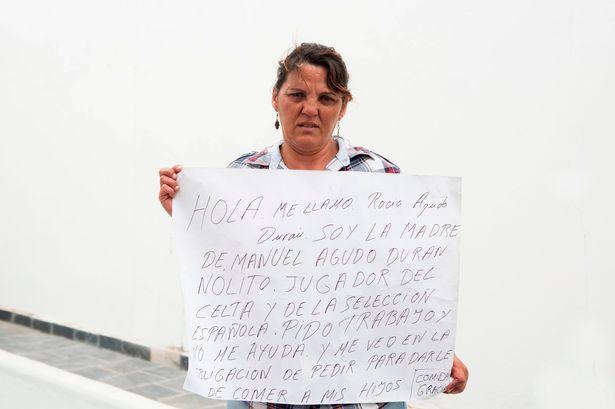 HOLA. ME LLAMO Rocio Agudo
Duran. SOY LA MADRE
DE, MANUEL AGUDO DURAN
NOLITO. JUGADOR DEL
CELTA Y DE LA SELECCION
ESPAÑOLA. PIDO TRABAJO Y
NO ME AYUDA. Y ME VEO EN LA
OBLIGACION DE PEDIR PARA DARLE
DE COMER A MIS HIJOS COMIDA
GRACIAS